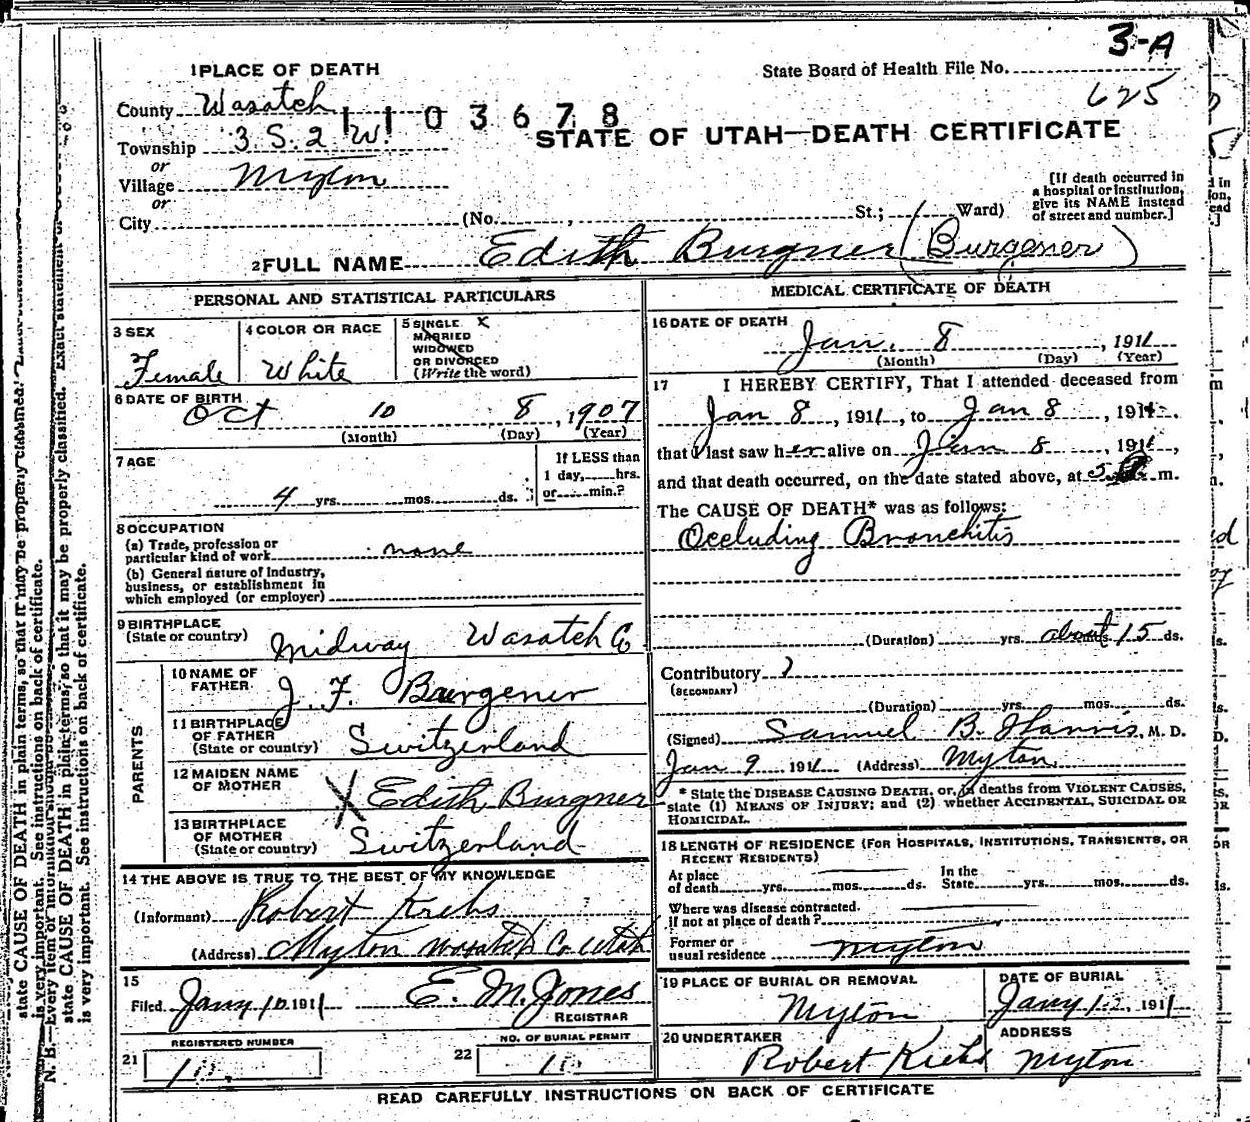 3-A
1 PLACE OF DEATH
State Board of Health File No.
625
County Wasatch
1103678
Township 3. S. 2 W.
STATE OF UTAH—DEATH CERTIFICATE
or
Village Myton
or
City (No. , St.; Ward)
[If death occurred in
a hospital or institution,
give its NAME instead
of street and number.]
2 FULL NAME Edith Burgner (Burgener)
PERSONAL AND STATISTICAL PARTICULARS
3 SEX
Female
4 COLOR OR RACE
White
5 SINGLE X
MARRIED
WIDOWED
OR DIVORCED
(Write the word)
6 DATE OF BIRTH
Oct 10 8, 1907
(Month) (Day) (Year)
7 AGE
4 yrs. mos. ds.
If LESS than
1 day, hrs.
or min.?
8 OCCUPATION
(a) Trade, profession or
particular kind of work none
(b) General nature of Industry,
business, or establishment in
which employed (or employer)
9 BIRTHPLACE
(State or country) Midway Wasatch Co
PARENTS
10 NAME OF
FATHER J. F. Burgener
11 BIRTHPLACE
OF FATHER
(State or country) Switzerland
12 MAIDEN NAME
OF MOTHER X Edith Burgner
13 BIRTHPLACE
OF MOTHER
(State or country) Switzerland
14 THE ABOVE IS TRUE TO THE BEST OF MY KNOWLEDGE
(Informant) Robert Krebs
(Address) Myton Wasatch Co Utah
15
Filed Jany 10 1911 E. M. Jones
REGISTRAR
REGISTERED NUMBER
21
NO. OF BURIAL PERMIT
22
MEDICAL CERTIFICATE OF DEATH
16 DATE OF DEATH
Jan. 8, 1911
(Month) (Day) (Year)
17 I HEREBY CERTIFY, That I attended deceased from
Jan 8, 1911, to Jan 8, 1911.
that I last saw her alive on Jan 8, 1911,
and that death occurred, on the date stated above, at 5 m.
The CAUSE OF DEATH* was as follows:
Occluding Bronchitis
(Duration) yrs. about 15 ds.
Contributory ?
(SECONDARY)
(Duration) yrs. mos. ds.
(Signed) Samuel B. Harris, M. D.
Jan 9 1911 (Address) Myton.
* State the DISEASE CAUSING DEATH, or, in deaths from VIOLENT CAUSES,
state (1) MEANS OF INJURY; and (2) whether ACCIDENTAL, SUICIDAL OR
HOMICIDAL.
18 LENGTH OF RESIDENCE (FOR HOSPITALS, INSTITUTIONS, TRANSIENTS, OR
RECENT RESIDENTS)
At place
of death yrs. mos. ds.
In the
State yrs. mos. ds.
Where was disease contracted.
if not at place of death?
Former or
usual residence Myton
19 PLACE OF BURIAL OR REMOVAL
Myton
DATE OF BURIAL
Jany 1911
20 UNDERTAKER
Robert Krebs
ADDRESS
Myton
READ CAREFULLY INSTRUCTIONS ON BACK OF CERTIFICATE
N. B.—Every item of information
state CAUSE OF DEATH in plain terms, so that it may be properly classified. Exact statement of
is very important. See instructions on back of certificate.